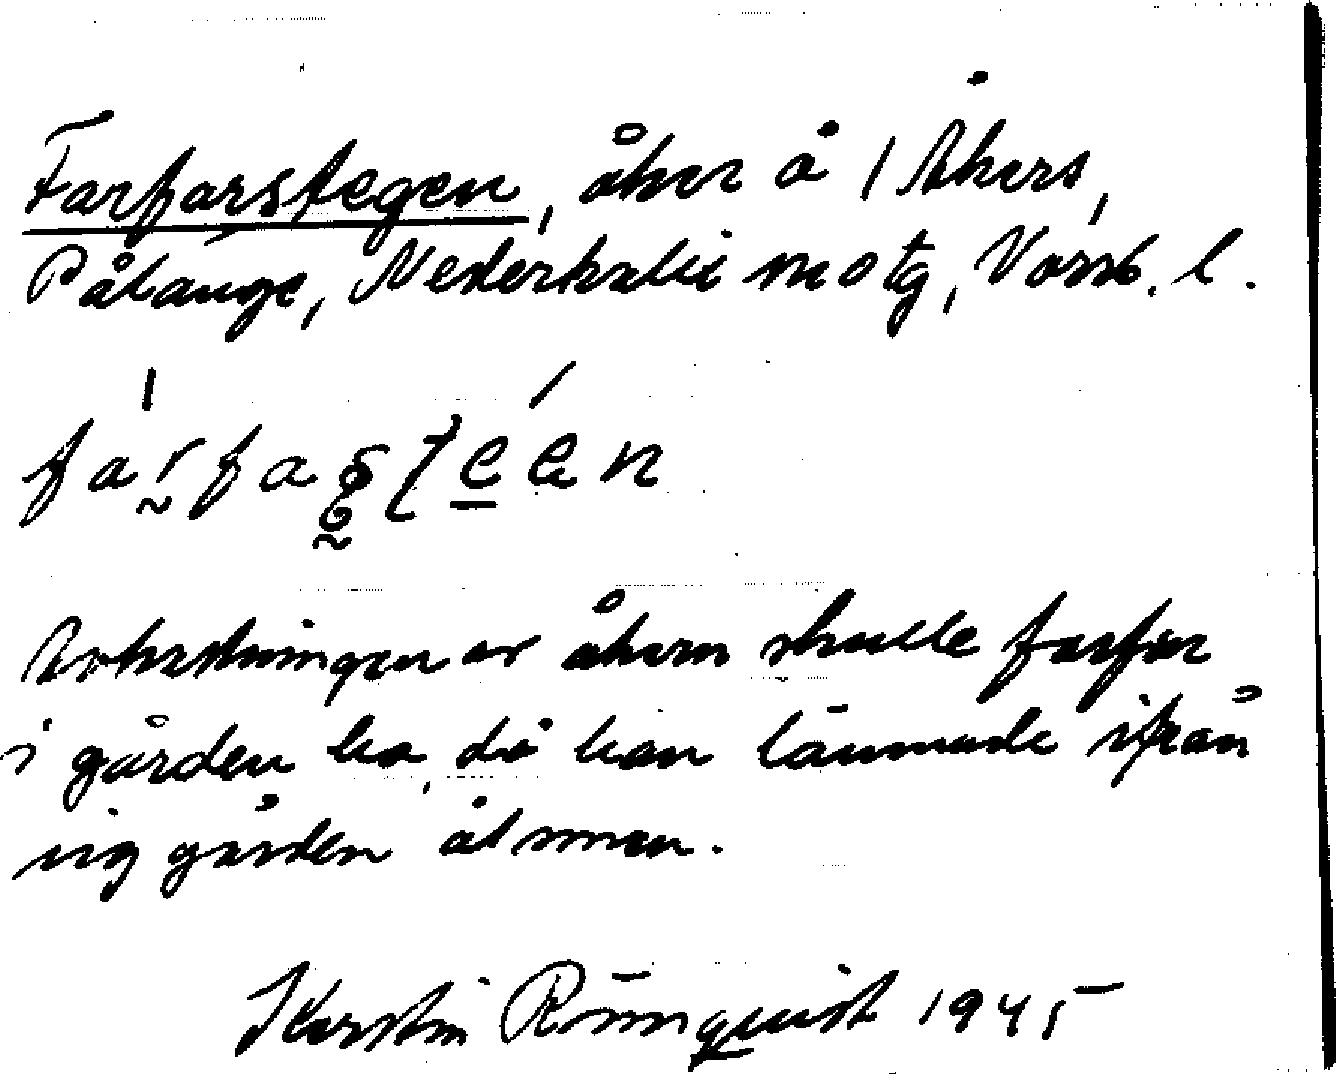 Farfarstegen, åker å 1 Åkers,
Pålänge, Nederkalix motg, Norrb. l.
farfasteen
Avkastningen av åkern skulle farfar
i gården ha, då han lämnade ifrån
sig gården åt sonen.
Kerstin Rönnquist 1945